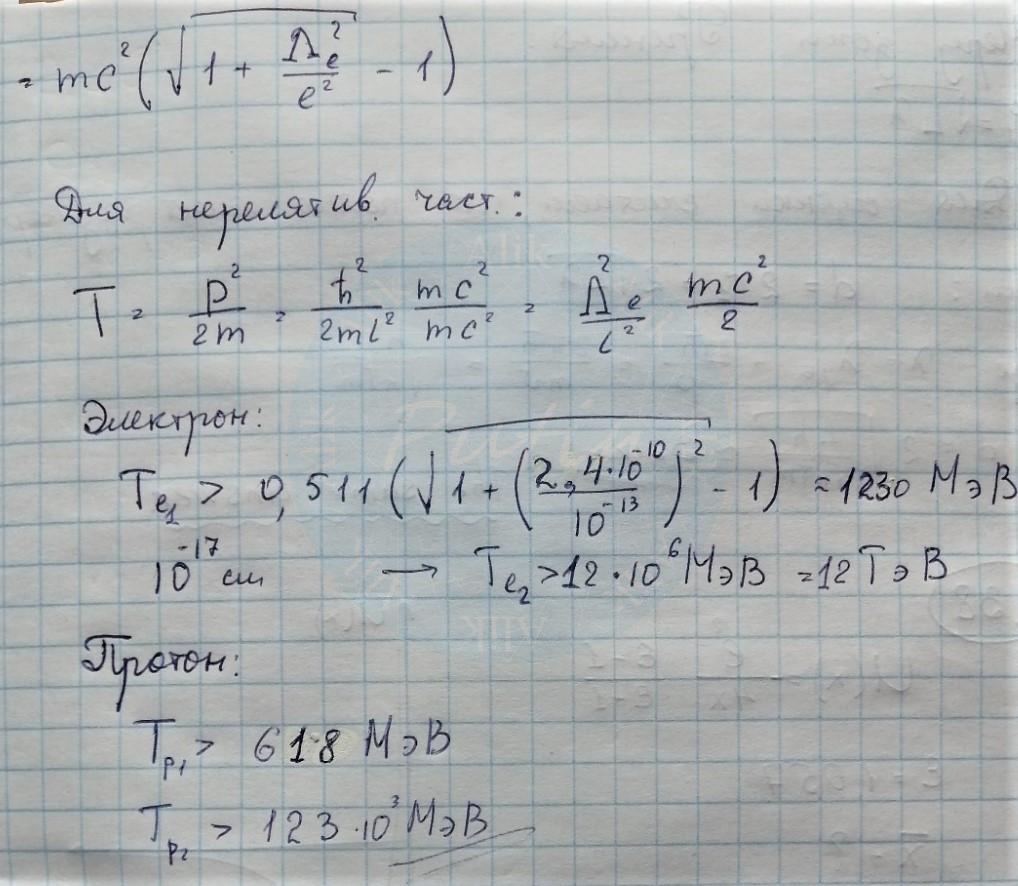 = mc² (√1 + Λe² / e² - 1)
Для нерелятив. част.:
T = p² / 2m = ħ² / 2ml² mc² / mc² = Λ²e / l² mc² / 2
Электрон:
Te₁ > 0,511 (√1 + (2,4·10⁻¹⁰ / 10⁻¹³)² - 1) = 1230 МэВ
10⁻¹⁷ см → Te₂ > 12·10⁶ МэВ = 12 ТэВ
Протон:
Tp₁ > 618 МэВ
Tp₂ > 123·10³ МэВ